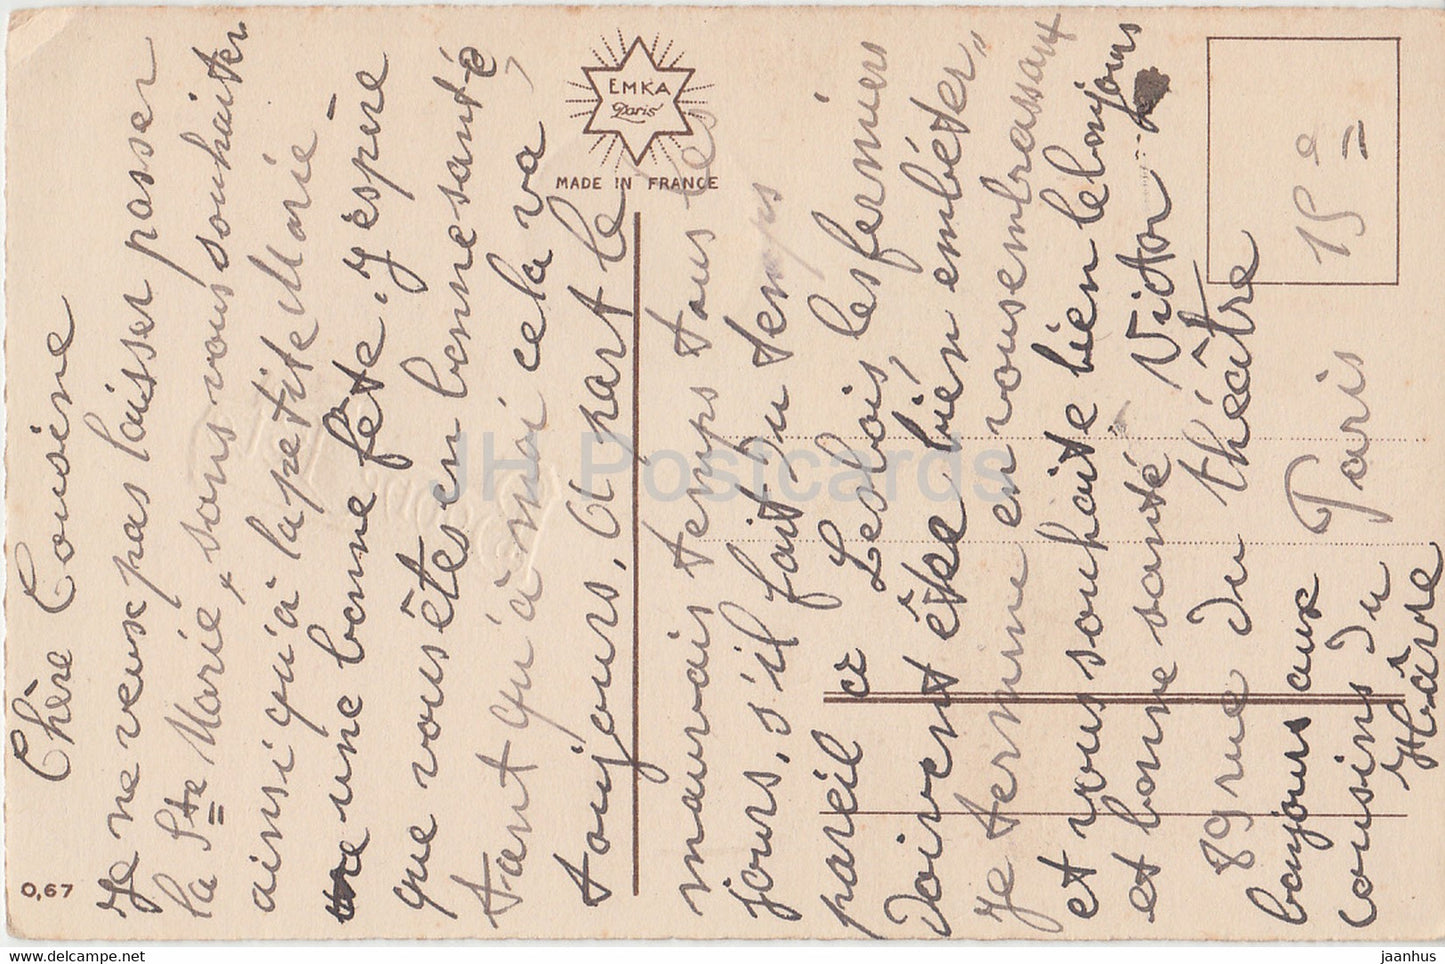 Chère Cousine
Je ne veux pas laisser passer
la Ste Marie, sans vous souhaiter
ainsi qu'à la petite Marie
une bonne fête. J'espère
que vous êtes en bonne santé,
tant qu'à moi cela va
toujours, à part le
mauvais temps tous les
jours, s'il fait du temps
pareil à Lesbois, les fermiers
doivent être bien embêter,
Je termine en vous embrassant
et vous souhaite bien le bonjours
et bonne santé Victor
89 rue du théâtre
Paris 15e
bonjours aux
cousins du
Hâvre
EMKA
Paris
MADE IN FRANCE
0,67
JH Postcards
hip-e.net
jaanhus